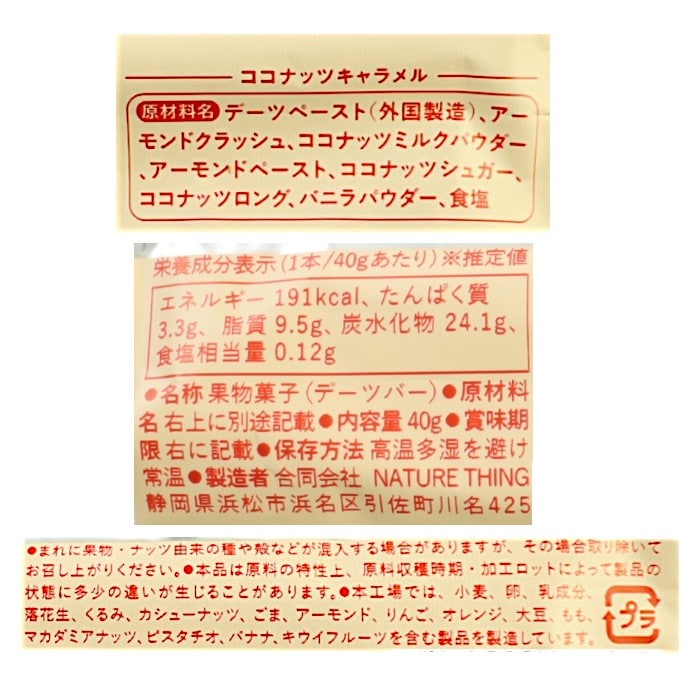 ココナッツキャラメル
原材料名 デーツペースト(外国製造)、アー
モンドクラッシュ、ココナッツミルクパウダー
、アーモンドペースト、ココナッツシュガー、
ココナッツロング、バニラパウダー、食塩
栄養成分表示(1本/40gあたり)※推定値
エネルギー 191kcal、たんぱく質
3.3g、脂質 9.5g、炭水化物 24.1g、
食塩相当量 0.12g
●名称 果物菓子(デーツバー)●原材料
名 右上に別途記載●内容量 40g●賞味期
限 右に記載●保存方法 高温多湿を避け
常温●製造者 合同会社 NATURE THING
静岡県浜松市浜名区引佐町川名425
●まれに果物・ナッツ由来の種や殻などが混入する場合がありますが、その場合取り除いて
お召し上がりください。●本品は原料の特性上、原料収穫時期・加工ロットによって製品の
状態に多少の違いが生じることがあります。●本工場では、小麦、卵、乳成分、
落花生、くるみ、カシューナッツ、ごま、アーモンド、りんご、オレンジ、大豆、もも、
マカダミアナッツ、ピスタチオ、バナナ、キウイフルーツを含む製品を製造しています。
プラ